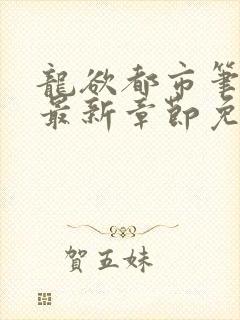 龍欲都市筆
最新章節免
賀五妹